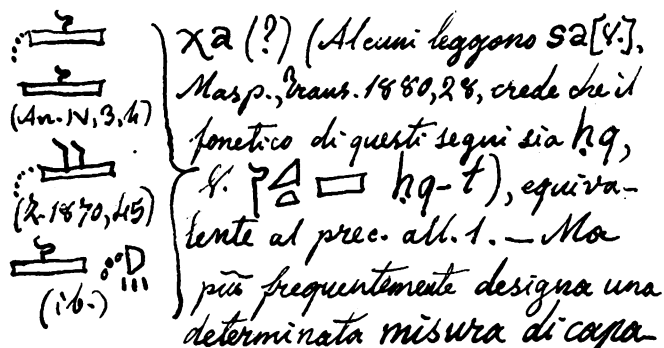 χa (?) (Alcuni leggono sa[V.],
(An. IV, 3, 4)
Masp., Trans. 1880, 28, crede che il
fonetico di questi segni sia ḥq,
(Z. 1870, 45)
V. ḥq-t), equiva-
lente al prec. all. 1. — Ma
(ib.)
più frequentemente designa una
determinata misura di capa-